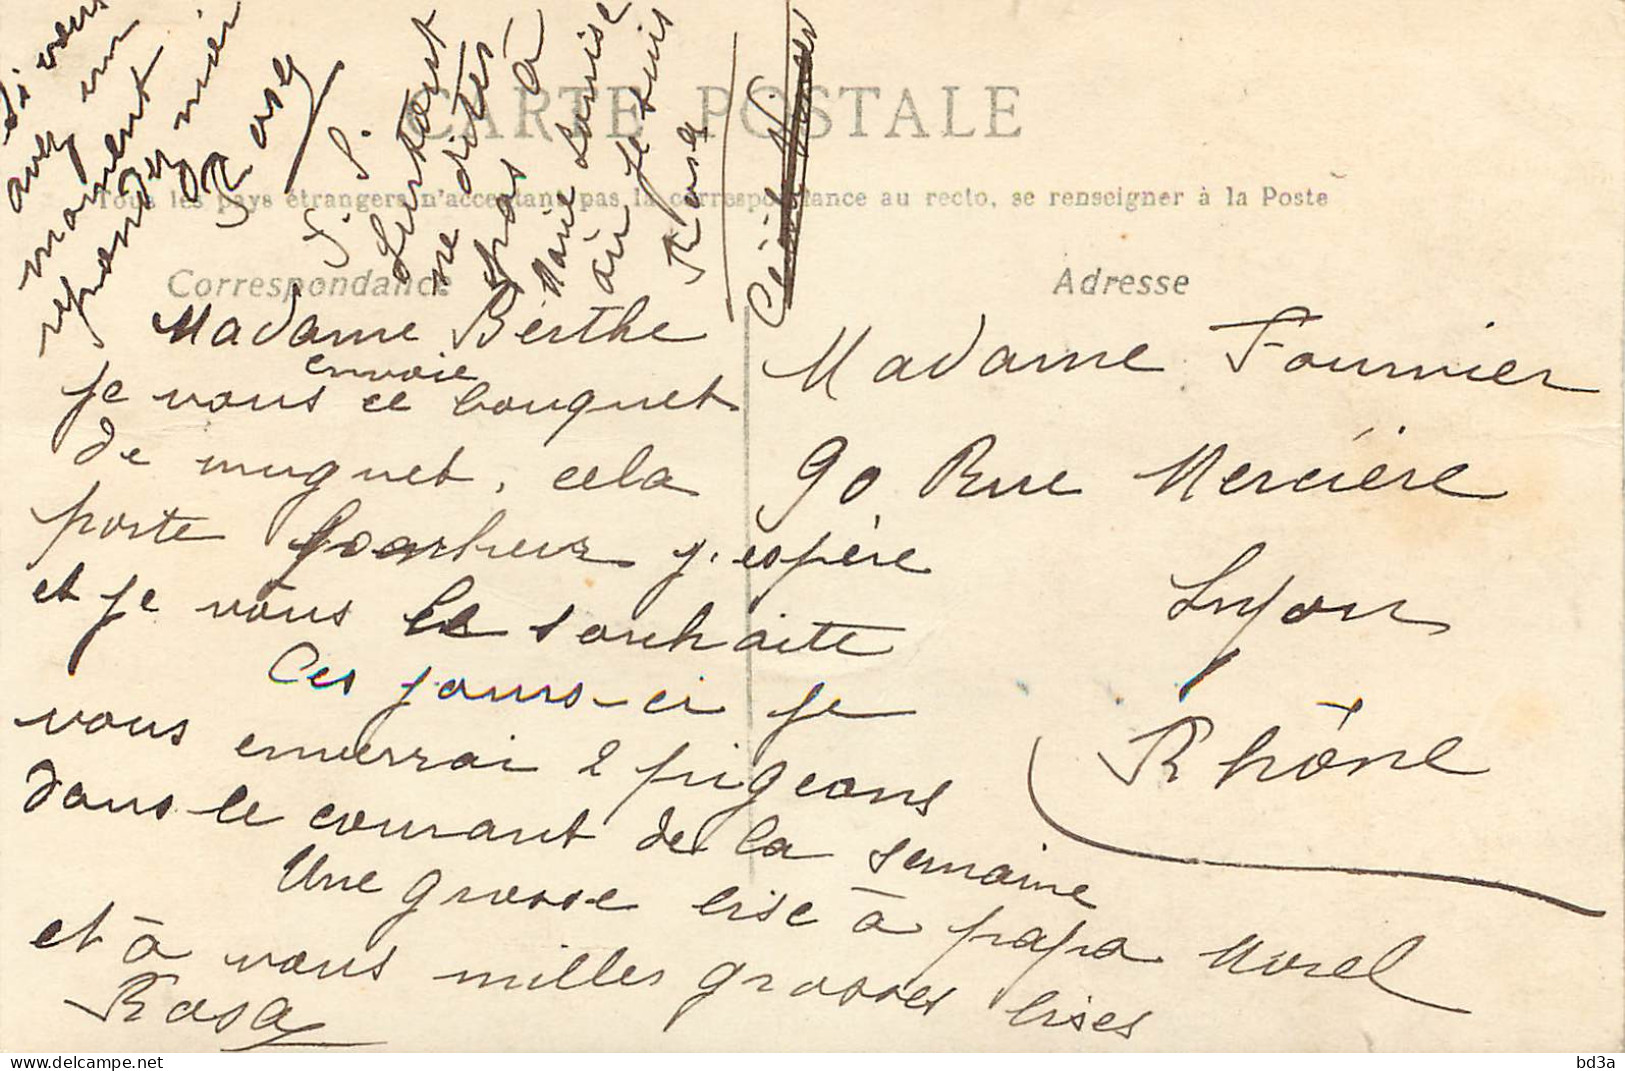 CARTE POSTALE
Tous les pays étrangers n'acceptent pas la correspondance au recto, se renseigner à la Poste
Correspondance
Adresse
Madame Berthe
je vous envoie ce bouquet
de muguet, cela
porte bonheur j'espère
et je vous le souhaite
Ces jours-ci je
vous enverrai 2 pigeons
dans le courant de la semaine
Une grosse bise à papa Morel
et à vous milles grosses bises
Rosa
Si vous
avez un
moment
repondez moi
Rosa
P. S.
Surtout
ne dites
pas à
Marie Louise
où je suis
Rosa
Madame Fournier
90 Rue Mercière
Lyon
Rhône
bd3a